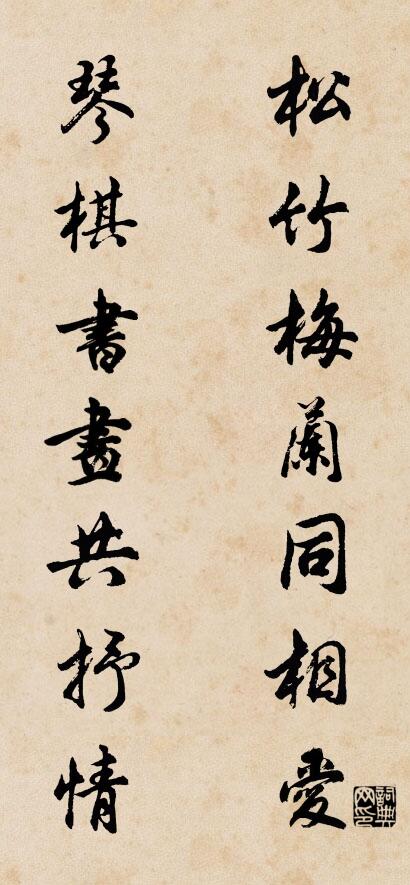 松竹梅蘭同相愛
琴棋書畫共抒情
詞典网印